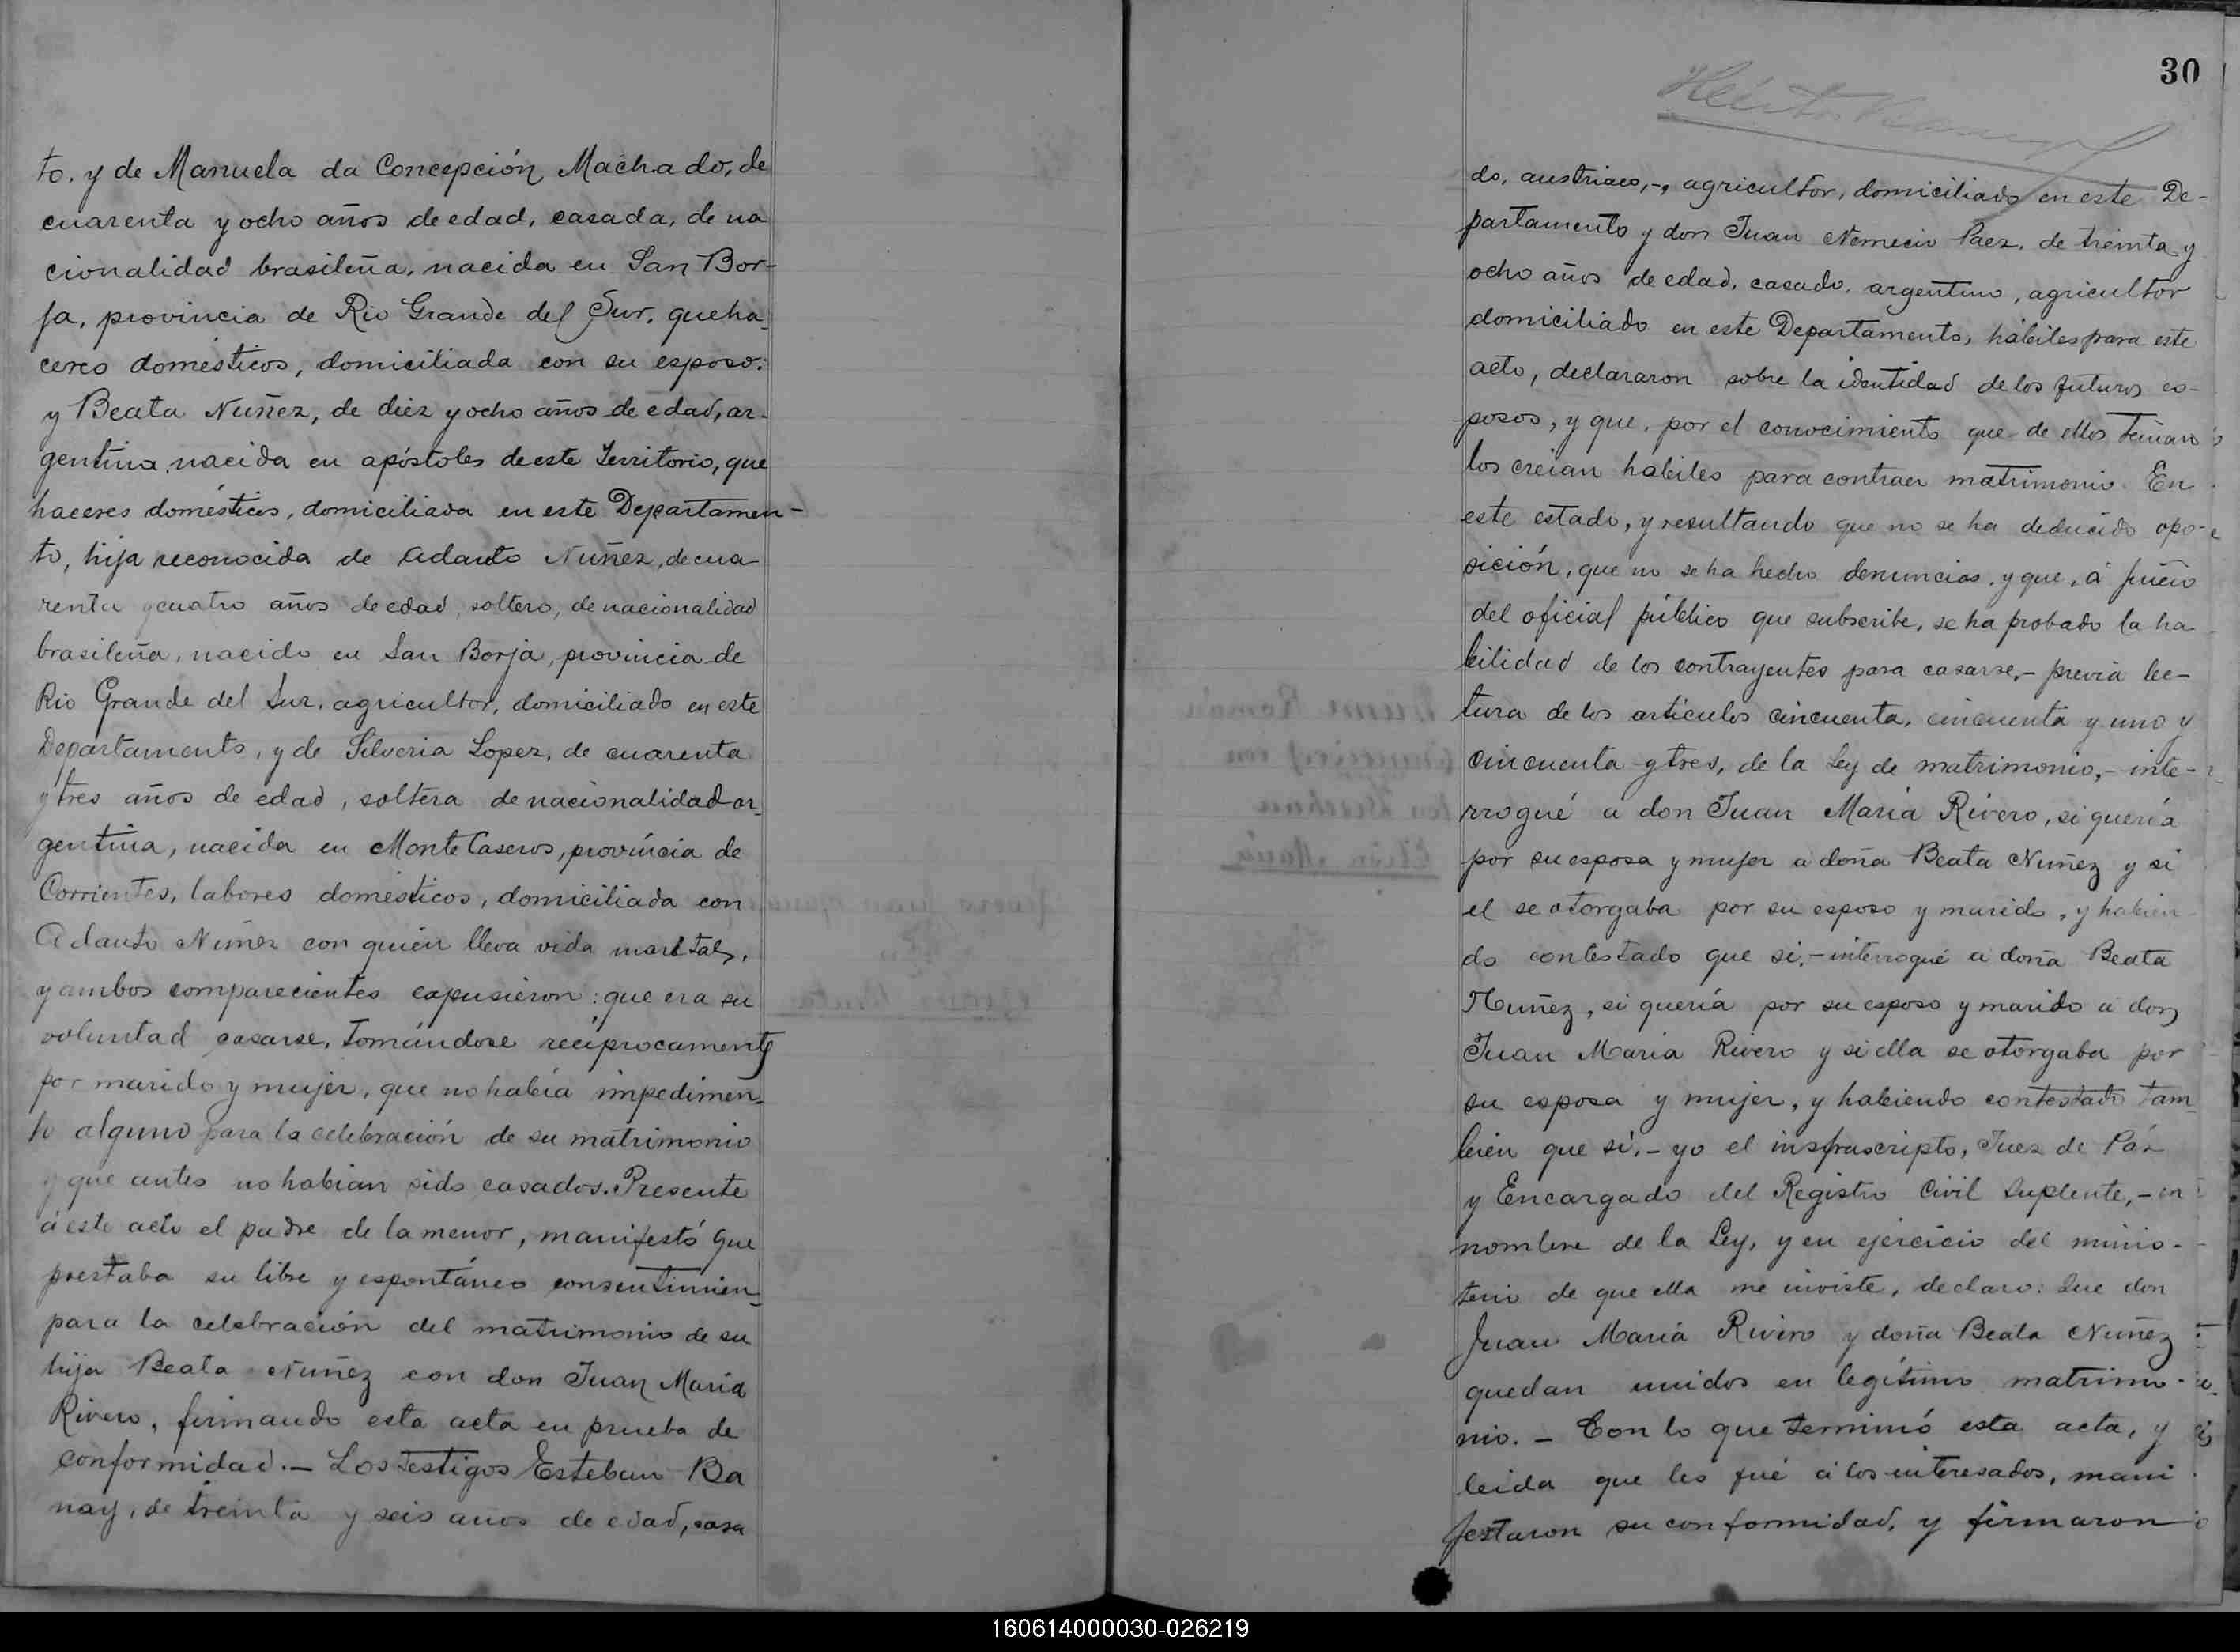 to, y de Manuela da Concepción Machado, de
cuarenta y ocho años de edad, casada, de na
cionalidad brasileña, nacida en San Bor-
ja, provincia de Rio Grande del Sur, queha_
ceres domésticos, domiciliada con su esposo:
y Beata Nuñez, de diez y ocho años de edad, ar-
gentina, nacida en apóstoles de este Territorio, que
haceres domésticos, domiciliada en este Departamen-
to, hija reconocida de Adauto Nuñez, de cua-
renta y cuatro años de edad, soltero, de nacionalidad
brasileña, nacido en San Borja, provincia de
Rio Grande del Sur, agricultor, domiciliado en este
Departamento, y de Silveria Lopez, de cuarenta
y tres años de edad, soltera de nacionalidad ar_
gentina, nacida en Monte Caseros, província de
Corrientes, labores domésticos, domiciliada con
Adauto Nuñez con quién lleva vida marital,
y ambos comparecientes expusieron: que era su
voluntad casarse, tomándose recíprocamente
por marido y mujer, que no había impedimen_
to alguno para la celebración de su matrimonio
y que antes no habian sido casados. Presente
á este acto el padre de la menor, manifestó que
prestaba su libre y espontáneo consentimien_
para la celebración del matrimonio de su
hija Beata Nuñez con don Juan María
Rivero, firmando esta acta en prueba de
conformidad. — Los testigos Esteban Ba
nay, de treinta y seis años de edad, casa
30
do, austriaco,-, agricultor, domiciliado en este De-
partamento y don Juan Nemecio Paez, de treinta y
ocho años de edad, casado, argentino, agricultor
domiciliado en este Departamento, hábiles para este
acto, declararon sobre la identidad de los futuros es-
posos, y que, por el conocimiento que de ellos tenian
los creian hábiles para contraer matrimonio. En
este estado, y resultando que no se ha deducido opo-
sición, que no se ha hecho denuncias, y que, á juicio
del oficial público que subscribe, se ha probado la ha
bilidad de los contrayentes para casarse,- previa lec-
tura de los artículos cincuenta, cincuenta y uno y
cincuenta y tres, de la Ley de matrimonio,- inte-
rrogué a don Juan María Rivero, si quería
por su esposa y mujer a doña Beata Nuñez y si
el se otorgaba por su esposo y marido, y habien
do contestado que si,- interrogué a doña Beata
Nuñez, si quería por su esposo y marido a don
Juan María Rivero y si ella se otorgaba por
su esposa y mujer, y habiendo contestado tam_
bien que si,- yo el insfrascripto, Juez de Páz
y Encargado del Registro Civil Suplente,- en
nombre de la Ley, y en ejercicio del minis-
terio de que ella me inviste, declaro: Que don
Juan María Rivero y doña Beata Nuñez
quedan unidos en legítimo matrimo-
nio. — Con lo que terminó esta acta, y
leida que les fué á los interesados, mani
festaron su conformidad, y firmaron
160614000030-026219